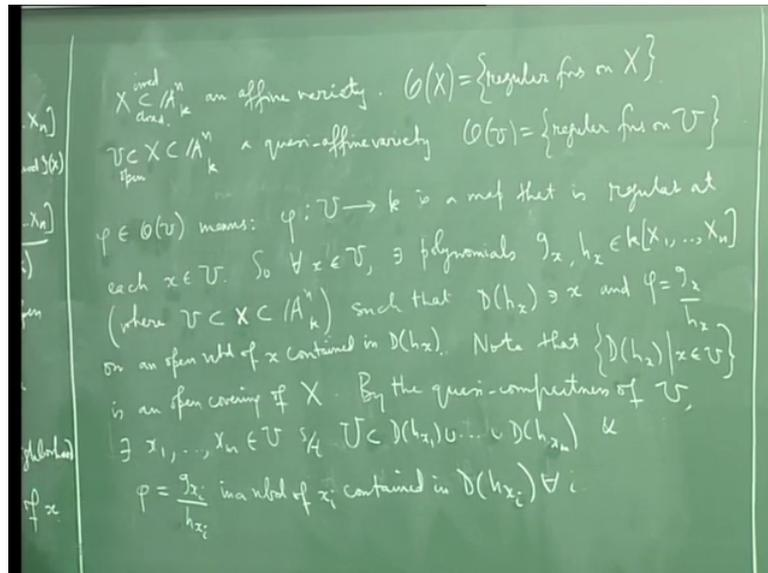 X irred ⊂ closed 𝔸ⁿₖ an affine variety. O(X) = {regular fns on X}.
U ⊂ open X ⊂ 𝔸ⁿₖ a quasi-affine variety O(U) = {regular fns on U}
φ ∈ O(U) means: φ : U → k is a map that is regular at
each x ∈ U. So ∀ x ∈ U, ∃ polynomials g_x, h_x ∈ k[X₁, ..., Xₙ]
(where U ⊂ X ⊂ 𝔸ⁿₖ) such that D(h_x) ∋ x and φ = g_x/h_x
on an open nbd of x contained in D(h_x). Note that {D(h_x) | x ∈ U}
is an open covering of X. By the quasi-compactness of U,
∃ x₁, ..., xₘ ∈ U s/t U ⊂ D(h_x₁) ∪ ... ∪ D(h_xₘ) &
φ = g_xᵢ/h_xᵢ in a nbd of xᵢ contained in D(h_xᵢ) ∀ i.
Xₙ]
Xₙ]
of x